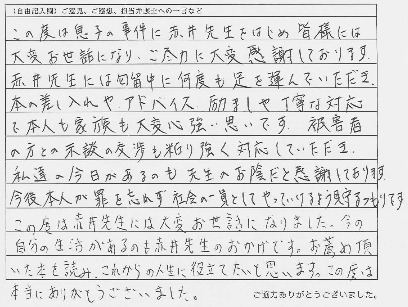 (自由記入欄)ご意見、ご感想、担当弁護士への一言など
この度は息子の事件に赤井先生をはじめ皆様には
大変お世話になり、ご尽力に大変感謝しております。
赤井先生には勾留中に何度も足を運んでいただき、
本の差し入れや、アドバイス、励ましや丁寧な対応
で本人も家族も大変心強い思いです。被害者
の方との示談の交渉も粘り強く対応していただき、
私達の今日があるのも先生のお陰だと感謝しております。
今後本人が罪を忘れず社会の一員としてやっていけるよう見守るつもりです
この度は赤井先生には大変お世話になりました。今の
自分の生活があるのも赤井先生のおかげです。お薦め頂
いた本を読み、これからの人生に役立てたいと思います。この度は
本当にありがとうございました。
ご協力ありがとうございました。